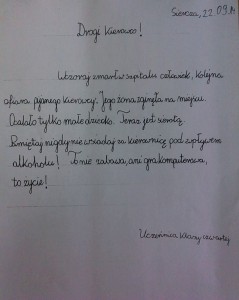 Sieradz, 22.09.14
Drogi Kierowco!
Wczoraj zmarł w szpitalu człowiek, kolejna
ofiara pijanego kierowcy. Jego żona zginęła na miejscu.
Ocalało tylko małe dziecko. Teraz jest sierotą.
Pamiętaj nigdy nie wsiadaj za kierownicę pod wpływem
alkoholu! To nie zabawa, ani gra komputerowa,
to życie!
Uczennica klasy czwartej